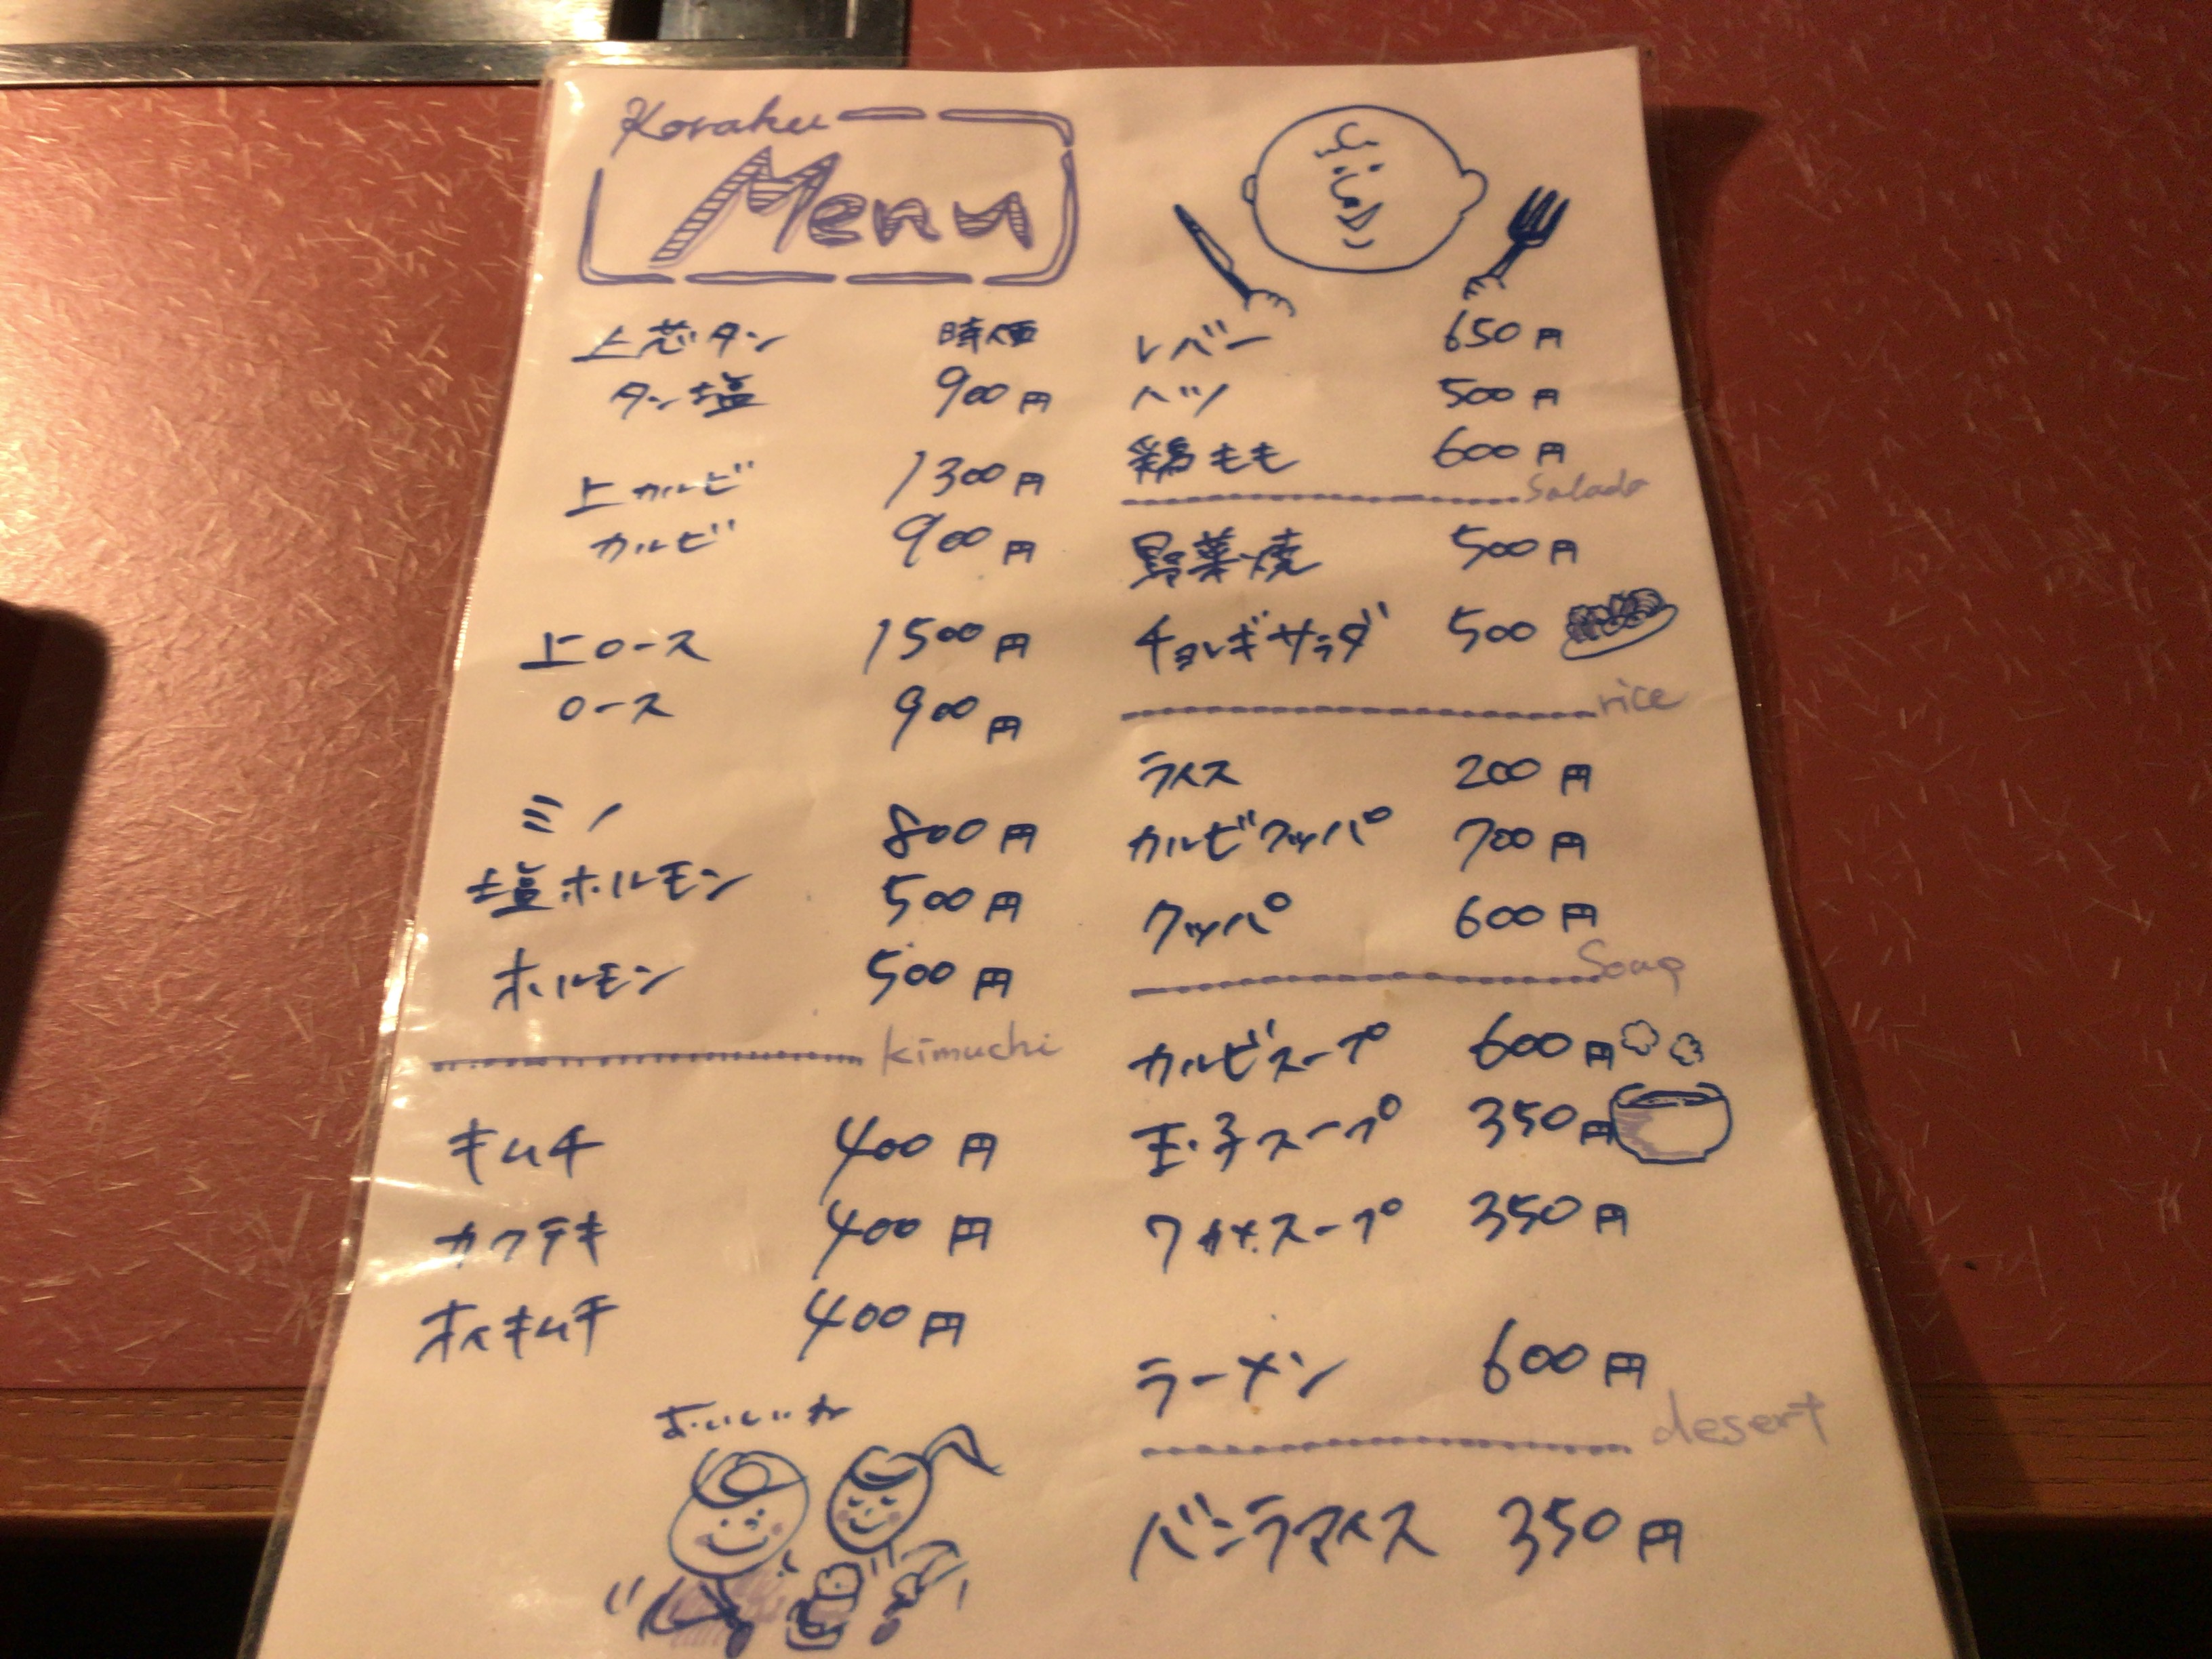 Koraku
Menu
上芯タン 時価
タン塩 900円
上カルビ 1300円
カルビ 900円
上ロース 1500円
ロース 900円
ミノ 800円
塩ホルモン 500円
ホルモン 500円
kimuchi
キムチ 400円
カクテキ 400円
オイキムチ 400円
レバー 650円
ハツ 500円
鶏もも 600円
Salada
野菜焼 500円
チョレギサラダ 500
rice
ライス 200円
カルビクッパ 700円
クッパ 600円
Soup
カルビスープ 600円
玉子スープ 350円
ワカメスープ 350円
ラーメン 600円
desert
バニラアイス 350円